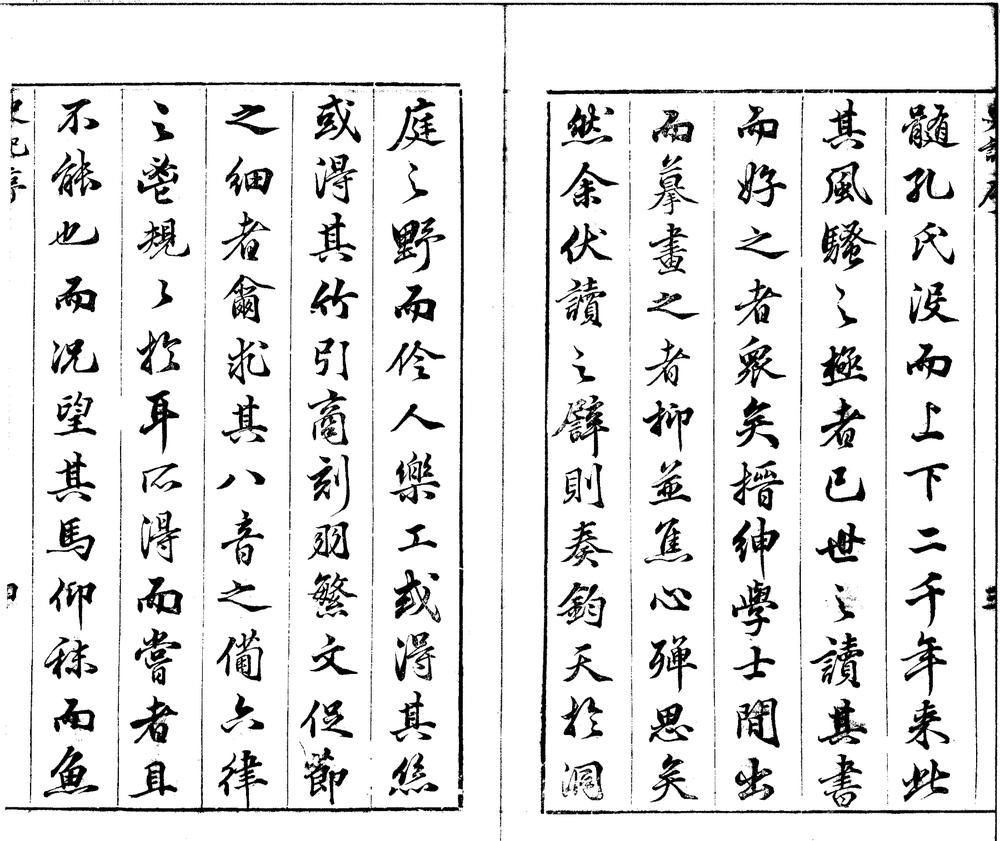 史記序
三
髓孔氏沒而上下二千年來此
其風騷之極者已世之讀其書
而好之者衆矣搢紳學士閒出
而摹畫之者抑並焦心殫思矣
然余伏讀之譬則奏鈞天於洞
庭之野而伶人樂工或得其絲
或得其竹引商刻羽繁文促節
之細者爾求其八音之備六律
之鬯規規於耳所得而嘗者且
不能也而況望其馬仰秣而魚
史記序
四